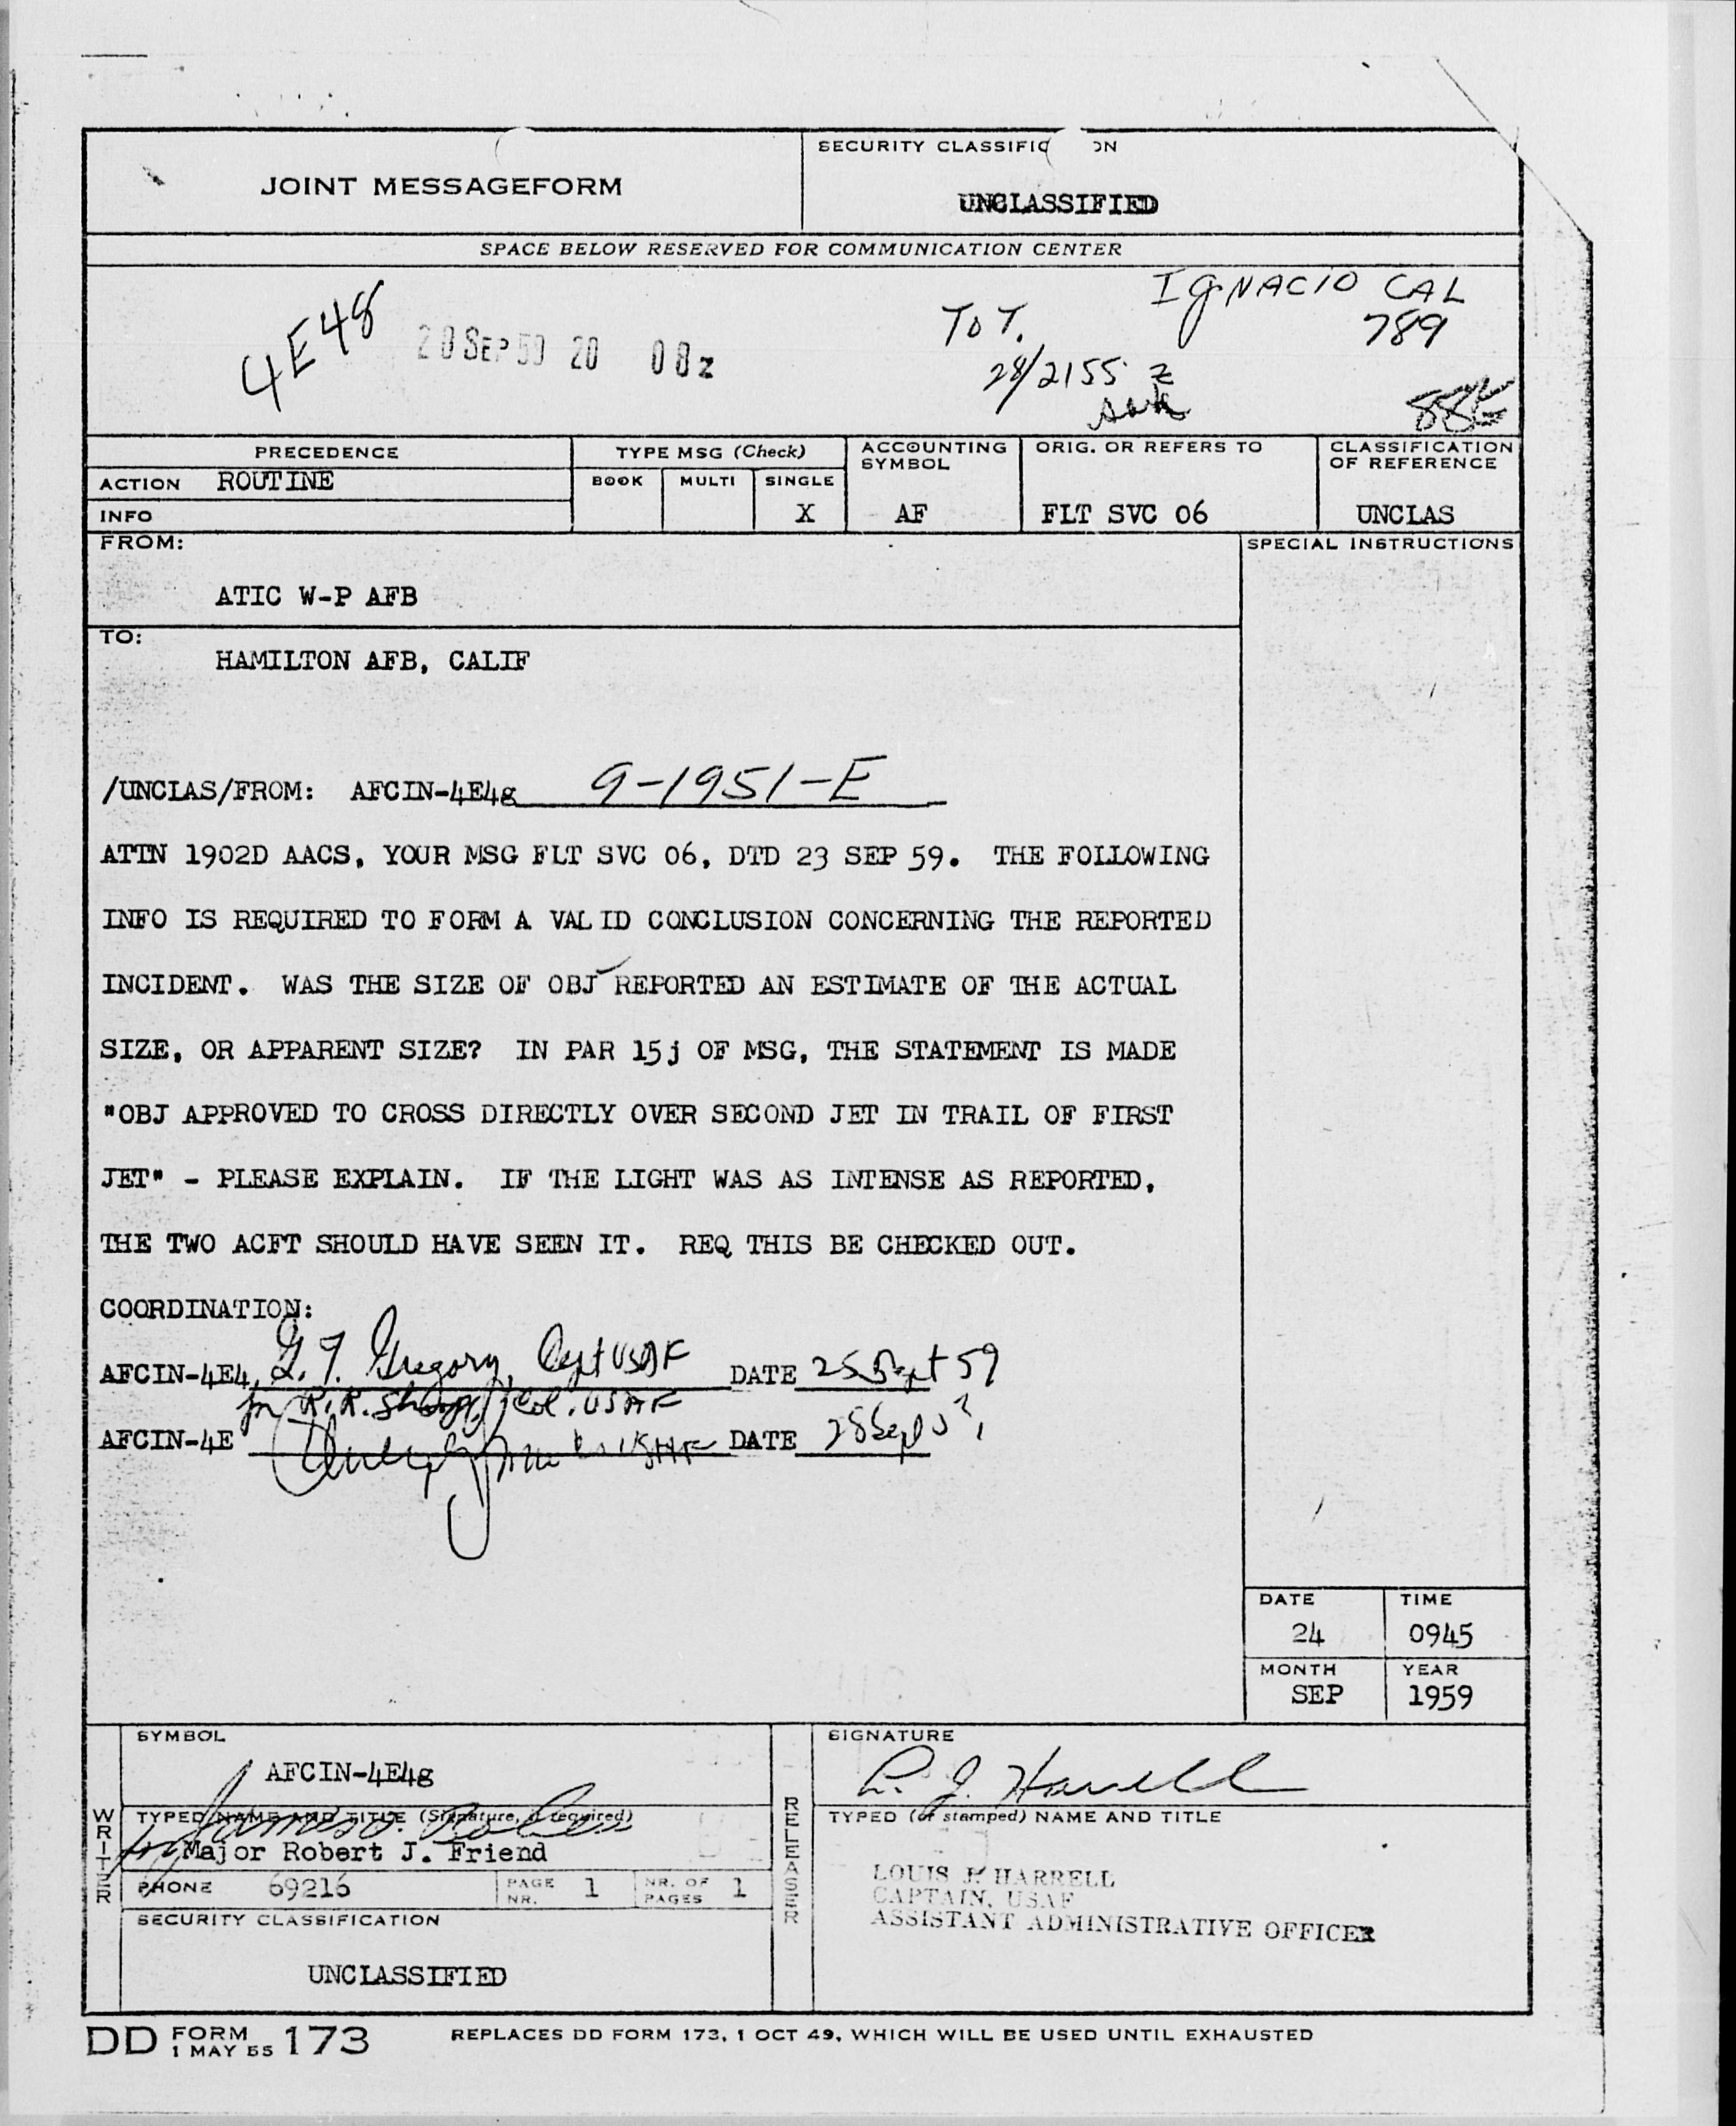 JOINT MESSAGEFORM
SECURITY CLASSIFIC ON
UNCLASSIFIED
SPACE BELOW RESERVED FOR COMMUNICATION CENTER
4E48
28 SEP 59 20 08z
TOT.
28/2155 z
IGNACIO CAL
789
PRECEDENCE
TYPE MSG (Check)
ACCOUNTING SYMBOL
ORIG. OR REFERS TO
CLASSIFICATION OF REFERENCE
ACTION ROUTINE
BOOK MULTI SINGLE
INFO
X AF FLT SVC 06 UNCLAS
FROM:
SPECIAL INSTRUCTIONS
ATIC W-P AFB
TO:
HAMILTON AFB, CALIF
/UNCLAS/FROM: AFCIN-4E4g 9-1951-E
ATTN 1902D AACS, YOUR MSG FLT SVC 06, DTD 23 SEP 59. THE FOLLOWING
INFO IS REQUIRED TO FORM A VALID CONCLUSION CONCERNING THE REPORTED
INCIDENT. WAS THE SIZE OF OBJ REPORTED AN ESTIMATE OF THE ACTUAL
SIZE, OR APPARENT SIZE? IN PAR 15j OF MSG, THE STATEMENT IS MADE
"OBJ APPROVED TO CROSS DIRECTLY OVER SECOND JET IN TRAIL OF FIRST
JET" - PLEASE EXPLAIN. IF THE LIGHT WAS AS INTENSE AS REPORTED,
THE TWO ACFT SHOULD HAVE SEEN IT. REQ THIS BE CHECKED OUT.
COORDINATION:
AFCIN-4E4 G. T. Gregory, Capt USAF DATE 25 Sept 59
for R.R. Shoop, Col. USAF
AFCIN-4E DATE 28 Sep
DATE TIME
24 0945
MONTH YEAR
SEP 1959
WRITER
SYMBOL
AFCIN-4E4g
TYPED NAME AND TITLE (Signature, if required)
Major Robert J. Friend
PHONE 69216
PAGE NR. 1
NR. OF PAGES 1
SECURITY CLASSIFICATION
UNCLASSIFIED
RELEASER
SIGNATURE
L. J. Harrell
TYPED (or stamped) NAME AND TITLE
LOUIS J. HARRELL
CAPTAIN, USAF
ASSISTANT ADMINISTRATIVE OFFICER
DD FORM 1 MAY 55 173
REPLACES DD FORM 173, 1 OCT 49, WHICH WILL BE USED UNTIL EXHAUSTED